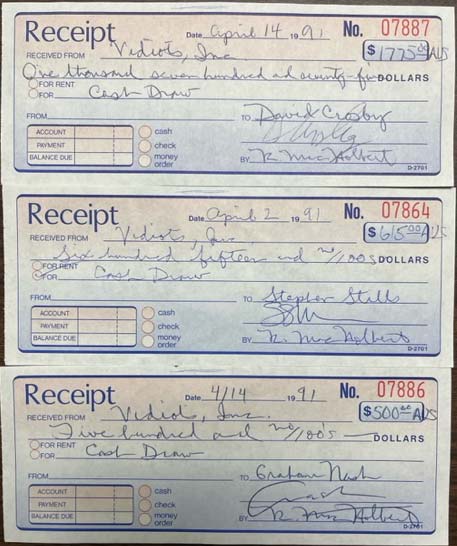 Receipt Date April 14 1991 No. 07887
RECEIVED FROM Vidiots, Inc $1775.00 AUS
One thousand seven hundred ad seventy-five DOLLARS
FOR RENT
FOR Cash Draw
FROM TO David Crosby
ACCOUNT cash
PAYMENT check
BALANCE DUE money order BY R. MacHolbert
D-2701
Receipt Date April 2 1991 No. 07864
RECEIVED FROM Vidiots, Inc $615.00 AUS
Six hundred fifteen and no/100s DOLLARS
FOR RENT
FOR Cash Draw
FROM TO Stephen Stills
ACCOUNT cash
PAYMENT check
BALANCE DUE money order BY R. MacHolbert
D-2701
Receipt Date 4/14 1991 No. 07886
RECEIVED FROM Vidiots, Inc. $500.00 AUS
Five hundred and no/100's DOLLARS
FOR RENT
FOR Cash Draw
FROM TO Graham Nash
ACCOUNT cash Nash
PAYMENT check
BALANCE DUE money order BY R. MacHolbert
D-2701